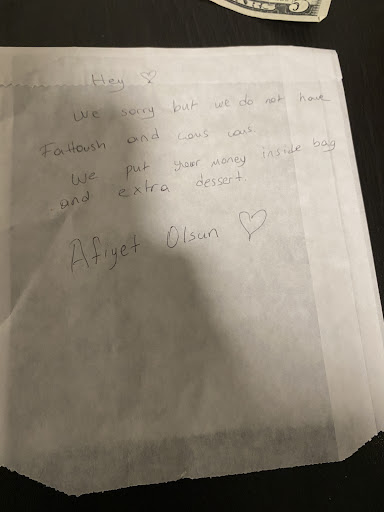 Hey ♡
We sorry but we do not have
Fattoush and cous cous.
We put your money inside bag
and extra dessert.
Afiyet Olsun ♡
5